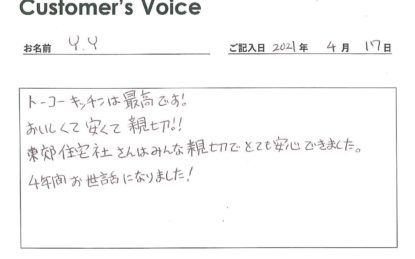 Customer's Voice
お名前 Y.Y ご記入日 2021年 4月 17日
トーコーキッチンは最高です!
おいしくて安くて親切!!
東郊住宅社さんはみんな親切でとても安心できました。
4年間お世話になりました!